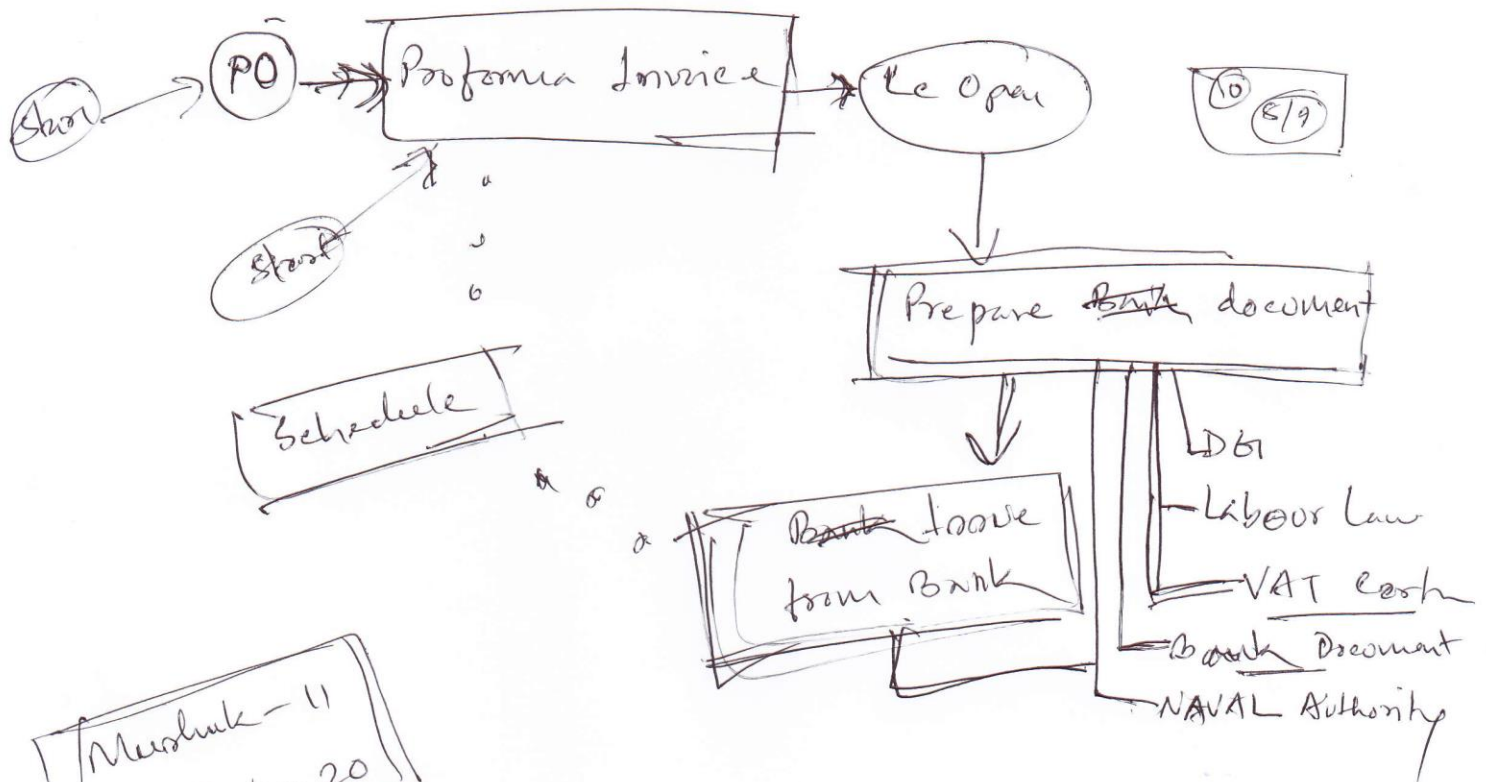 Start
PO
Proforma Invoice
Lc Open
10
8/9
Start
Prepare Bank document
Schedule
DG
Labour Law
Bank Issue
from Bank
VAT
Bank Document
NAVAL Authority
Mushuk-11
20